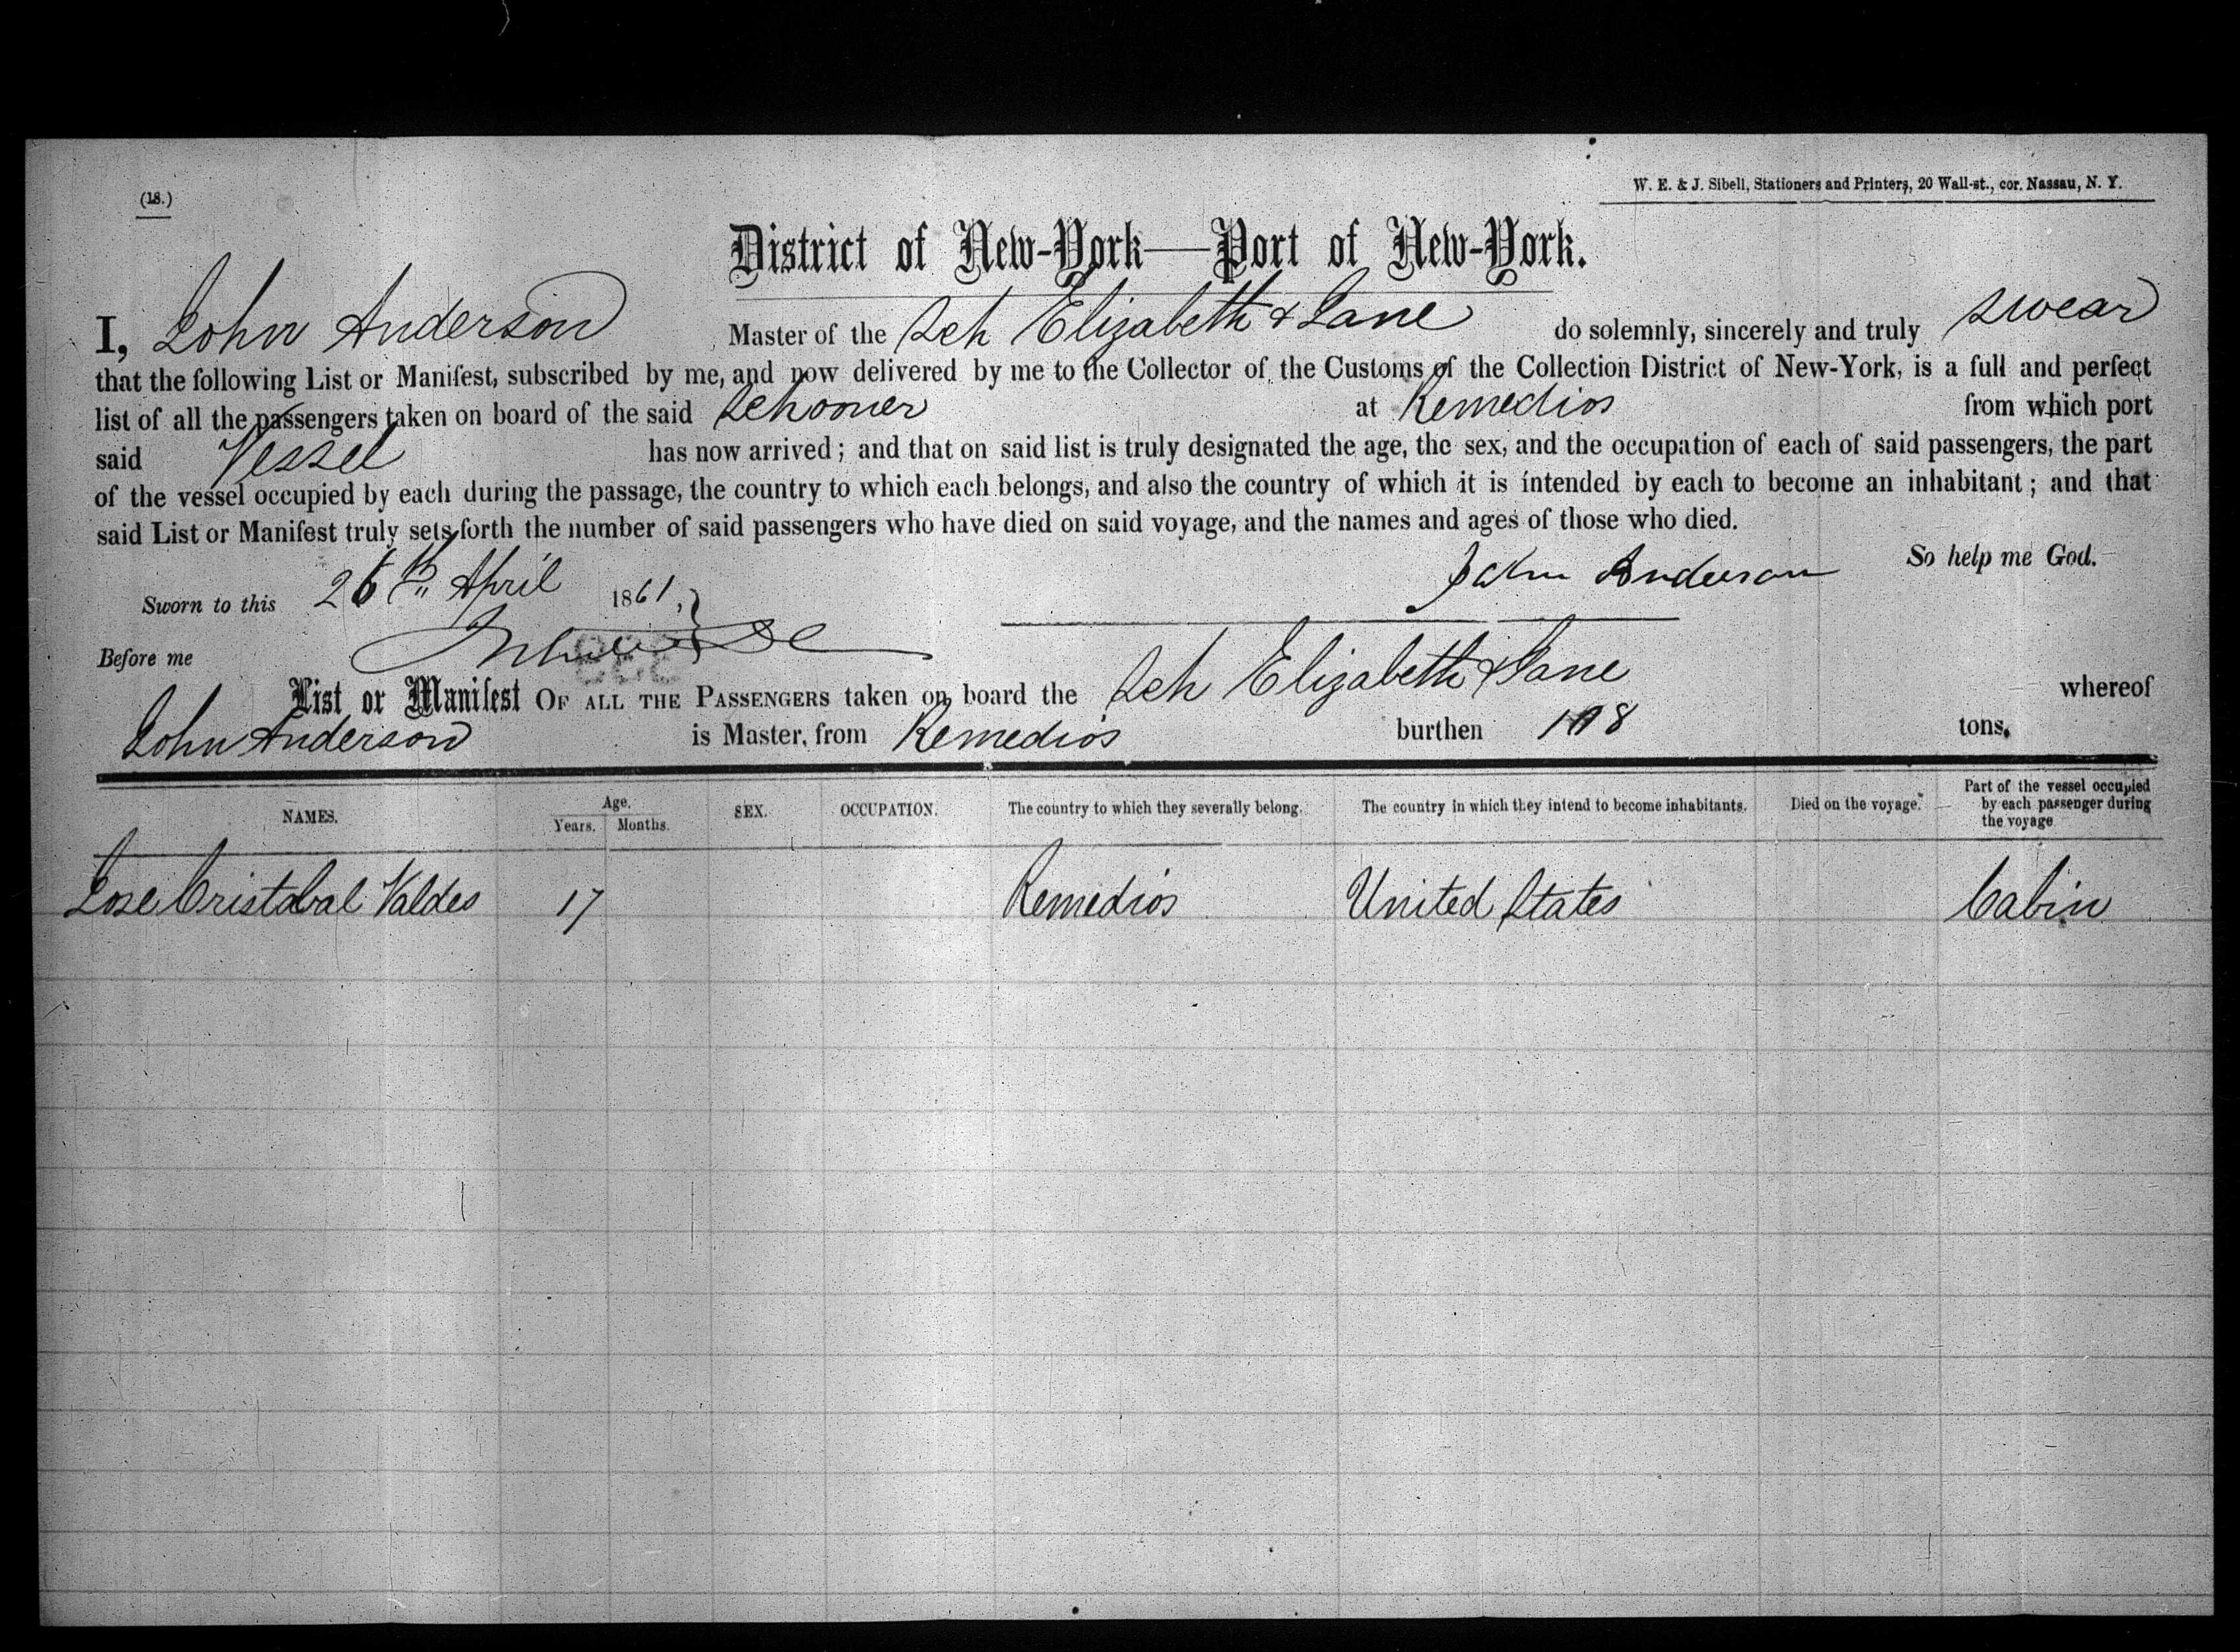 (18.)
W. E. & J. Sibell, Stationers and Printers, 20 Wall-st., cor. Nassau, N. Y.
District of New-York—Port of New-York.
I, John Anderson Master of the Sch Elizabeth & Jane do solemnly, sincerely and truly swear
that the following List or Manifest, subscribed by me, and now delivered by me to the Collector of the Customs of the Collection District of New-York, is a full and perfect
list of all the passengers taken on board of the said Schooner at Remedios from which port
said Vessel has now arrived; and that on said list is truly designated the age, the sex, and the occupation of each of said passengers, the part
of the vessel occupied by each during the passage, the country to which each belongs, and also the country of which it is intended by each to become an inhabitant; and that
said List or Manifest truly sets forth the number of said passengers who have died on said voyage, and the names and ages of those who died.
So help me God.
Sworn to this 26th April 1861, John Anderson
Before me
List or Manifest OF ALL THE PASSENGERS taken on board the Sch Elizabeth & Jane whereof
John Anderson is Master, from Remedios burthen tons.
NAMES. Age. Years. Months. SEX. OCCUPATION. The country to which they severally belong. The country in which they intend to become inhabitants. Died on the voyage. Part of the vessel occupied by each passenger during the voyage
Jose Cristobal Valdes 17 Remedios United States Cabin